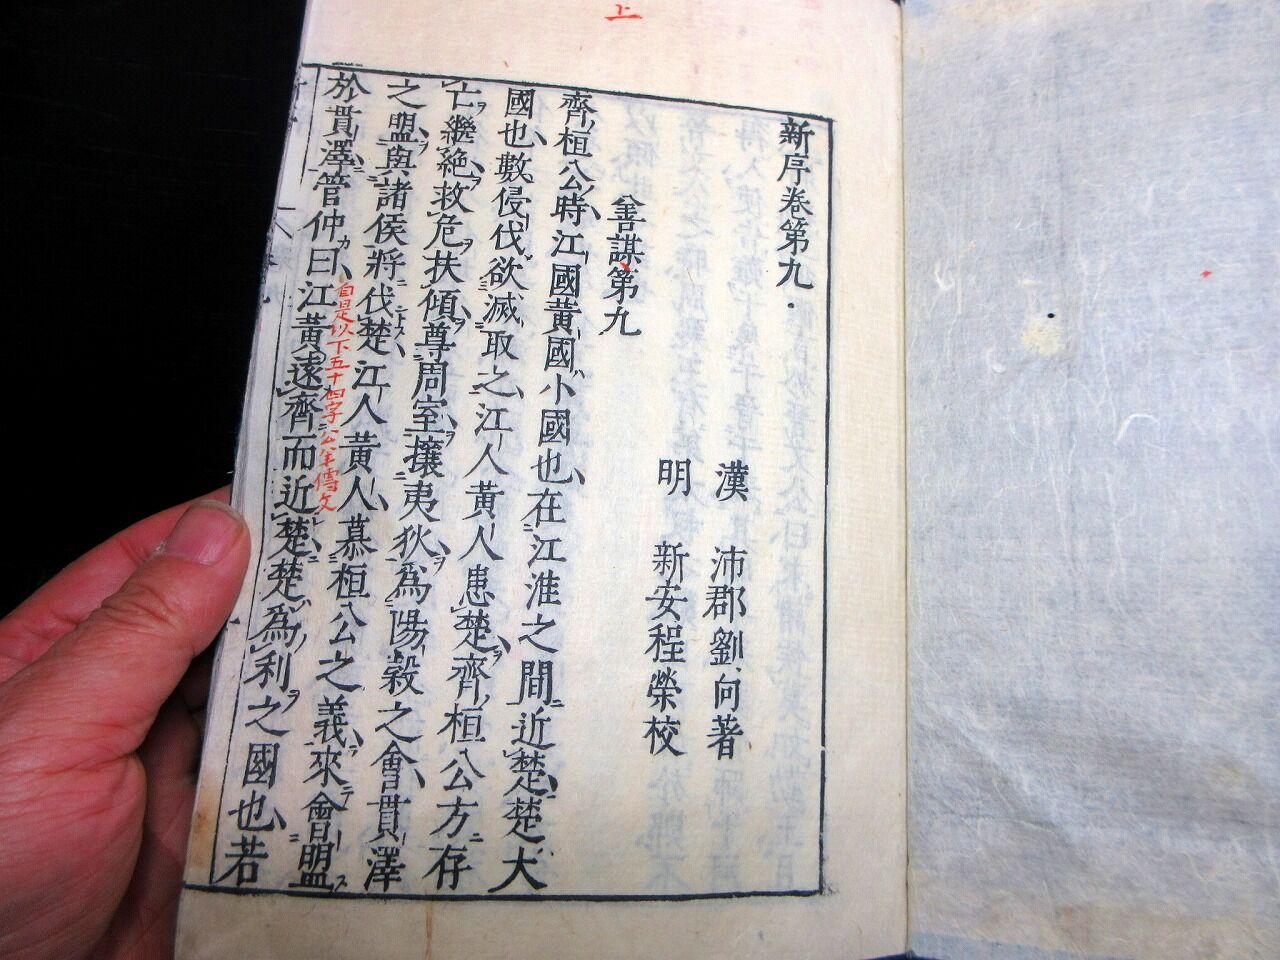 上
新序卷第九
漢 沛郡劉向著
明 新安程榮校
善謀第九
齊桓公時江國黃國小國也在江淮之間近楚楚大
國也數侵伐欲滅取之江人黃人患楚齊桓公方存
亡繼絶救危扶傾尊周室攘夷狄爲陽穀之會貫澤
之盟與諸侯將伐楚江人黃人慕桓公之義來會盟
於貫澤管仲曰江黃遠齊而近楚楚爲利之國也若
自是以下五十四字公羊傳文